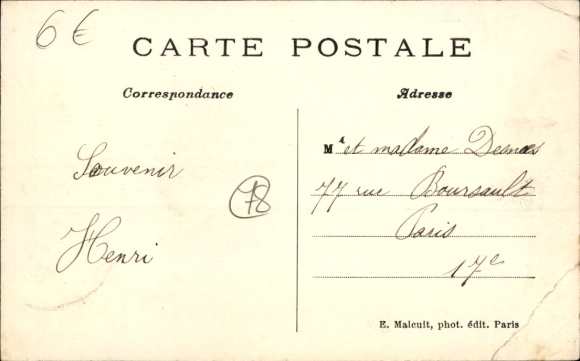 6 €
CARTE POSTALE
Correspondance
Adresse
Souvenir
Henri
78
Mr et madame
77 rue Boursault
Paris
17e
E. Malcuit, phot. édit. Paris